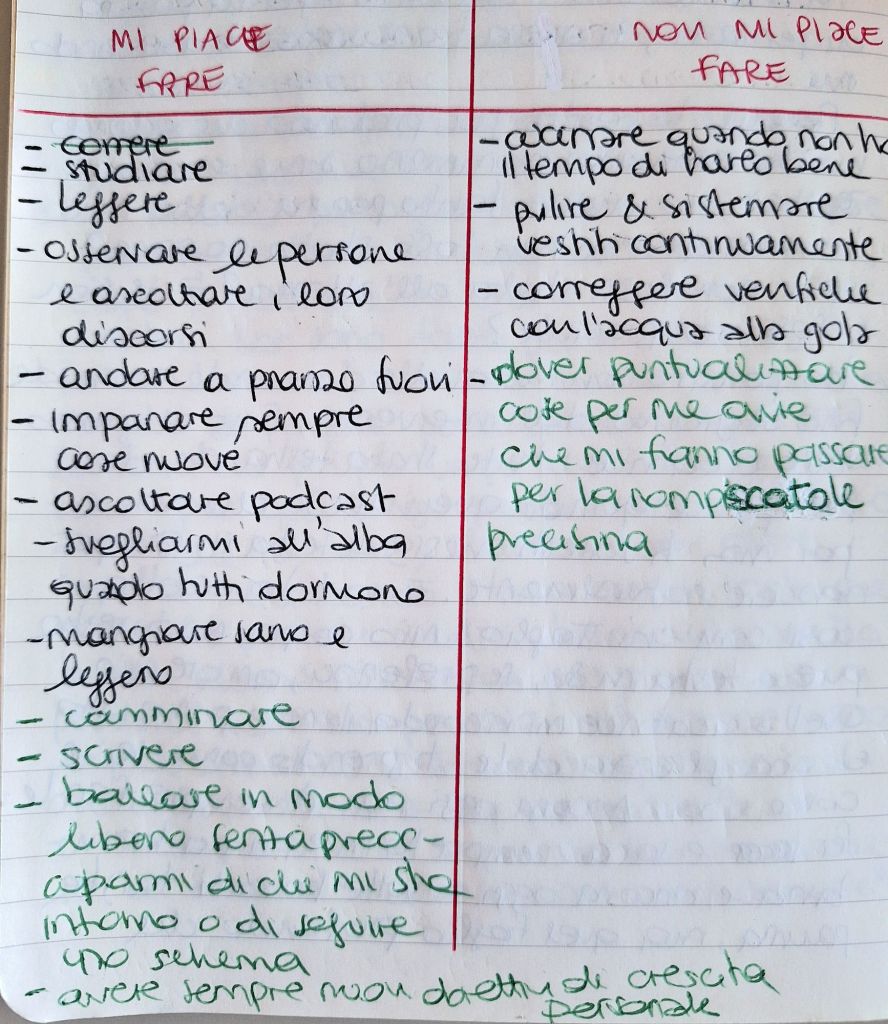 MI PIACE
FARE
- correre
- studiare
- leggere
- osservare le persone
e ascoltare i loro
discorsi
- andare a pranzo fuori
- imparare sempre
cose nuove
- ascoltare podcast
- svegliarmi all'alba
quando tutti dormono
- mangiare sano e
leggero
- camminare
- scrivere
- ballare in modo
libero senza preoc-
cuparmi di chi mi sta
intorno o di seguire
uno schema
- avere sempre nuovi obiettivi di crescita
personale
NON MI PIACE
FARE
- cucinare quando non ho
il tempo di farlo bene
- pulire & sistemare
vestiti continuamente
- correggere verifiche
con l'acqua alla gola
- dover puntualizzare
cose per me ovvie
che mi fanno passare
per la rompiscatole
precisina